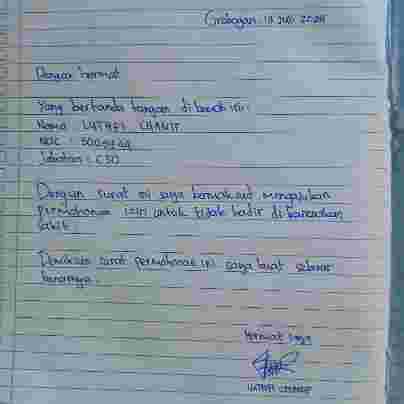 Grobogan, 13 Juli 2024
Dengan hormat
Yang bertanda tangan di bawah ini:
Nama : LUTHFI CHANIF
NOC :
Jabatan : CSO
Dengan surat ini saya bermaksud mengajukan
permohonan izin untuk tidak hadir di karenakan
sakit.
Demikian surat permohonan ini saya buat sebenar
benarnya.
Hormat saya
LUTHFI CHANIF